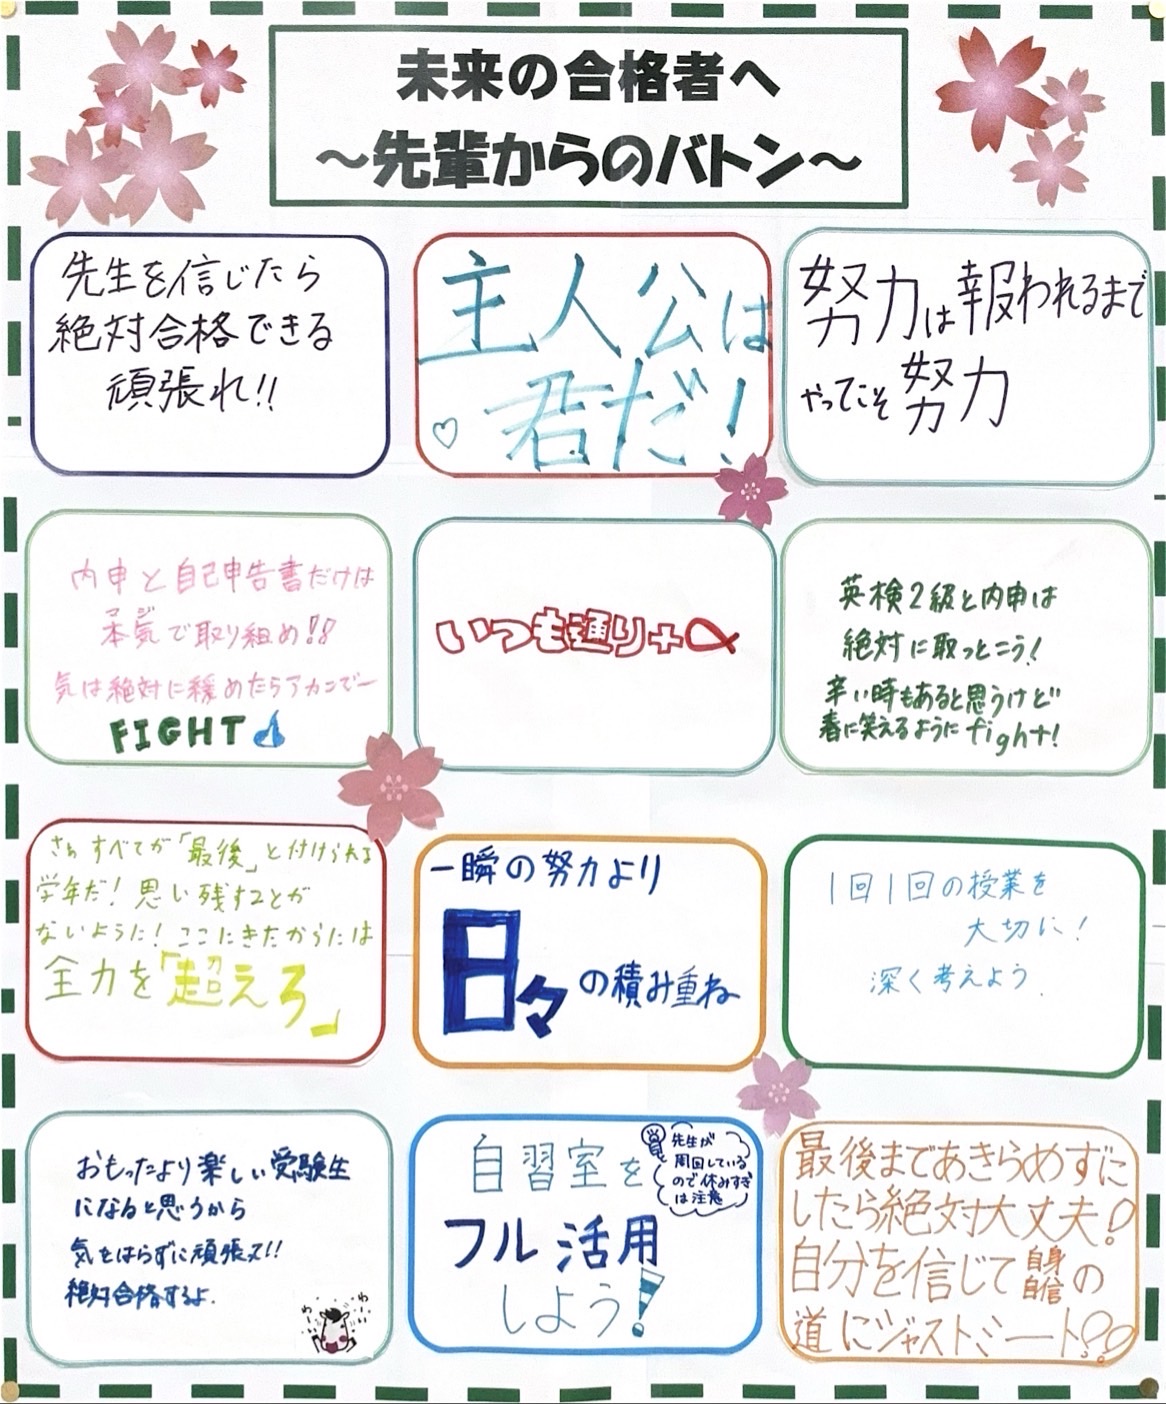 未来の合格者へ
～先輩からのバトン～
先生を信じたら
絶対合格できる
頑張れ!!
主人公は
君だ!
努力は報われるまで
やってこそ努力
内申と自己申告書だけは
マジ
本気で取り組め!!
気は絶対に緩めたらアカンでー
FIGHT
いつも通り+α
英検2級と内申は
絶対に取っとこう!
辛い時もあると思うけど
春に笑えるようにfight!
さぁすべてが「最後」と付けられる
学年だ!思い残すことが
ないように!ここにきたからには
全力を「超えろ」
一瞬の努力より
日々の積み重ね
1回1回の授業を
大切に!
深く考えよう.
おもったより楽しい受験生
になると思うから
気をはらずに頑張って!!
絶対合格するよ.
わーい
わーい
自習室を
フル活用
しよう!
先生が
周回している
ので休みすぎ
は注意
最後まであきらめずに
したら絶対大丈夫!
自分を信じて自身の
自信
道にジャストミート!?!?